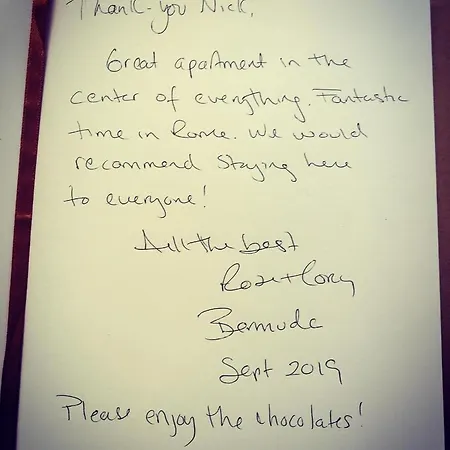 Thank-you Nick,
Great apartment in the
center of everything. Fantastic
time in Rome. We would
recommend staying here
to everyone!
All the best
Rose + Rory
Bermuda
Sept 2019
Please enjoy the chocolates!